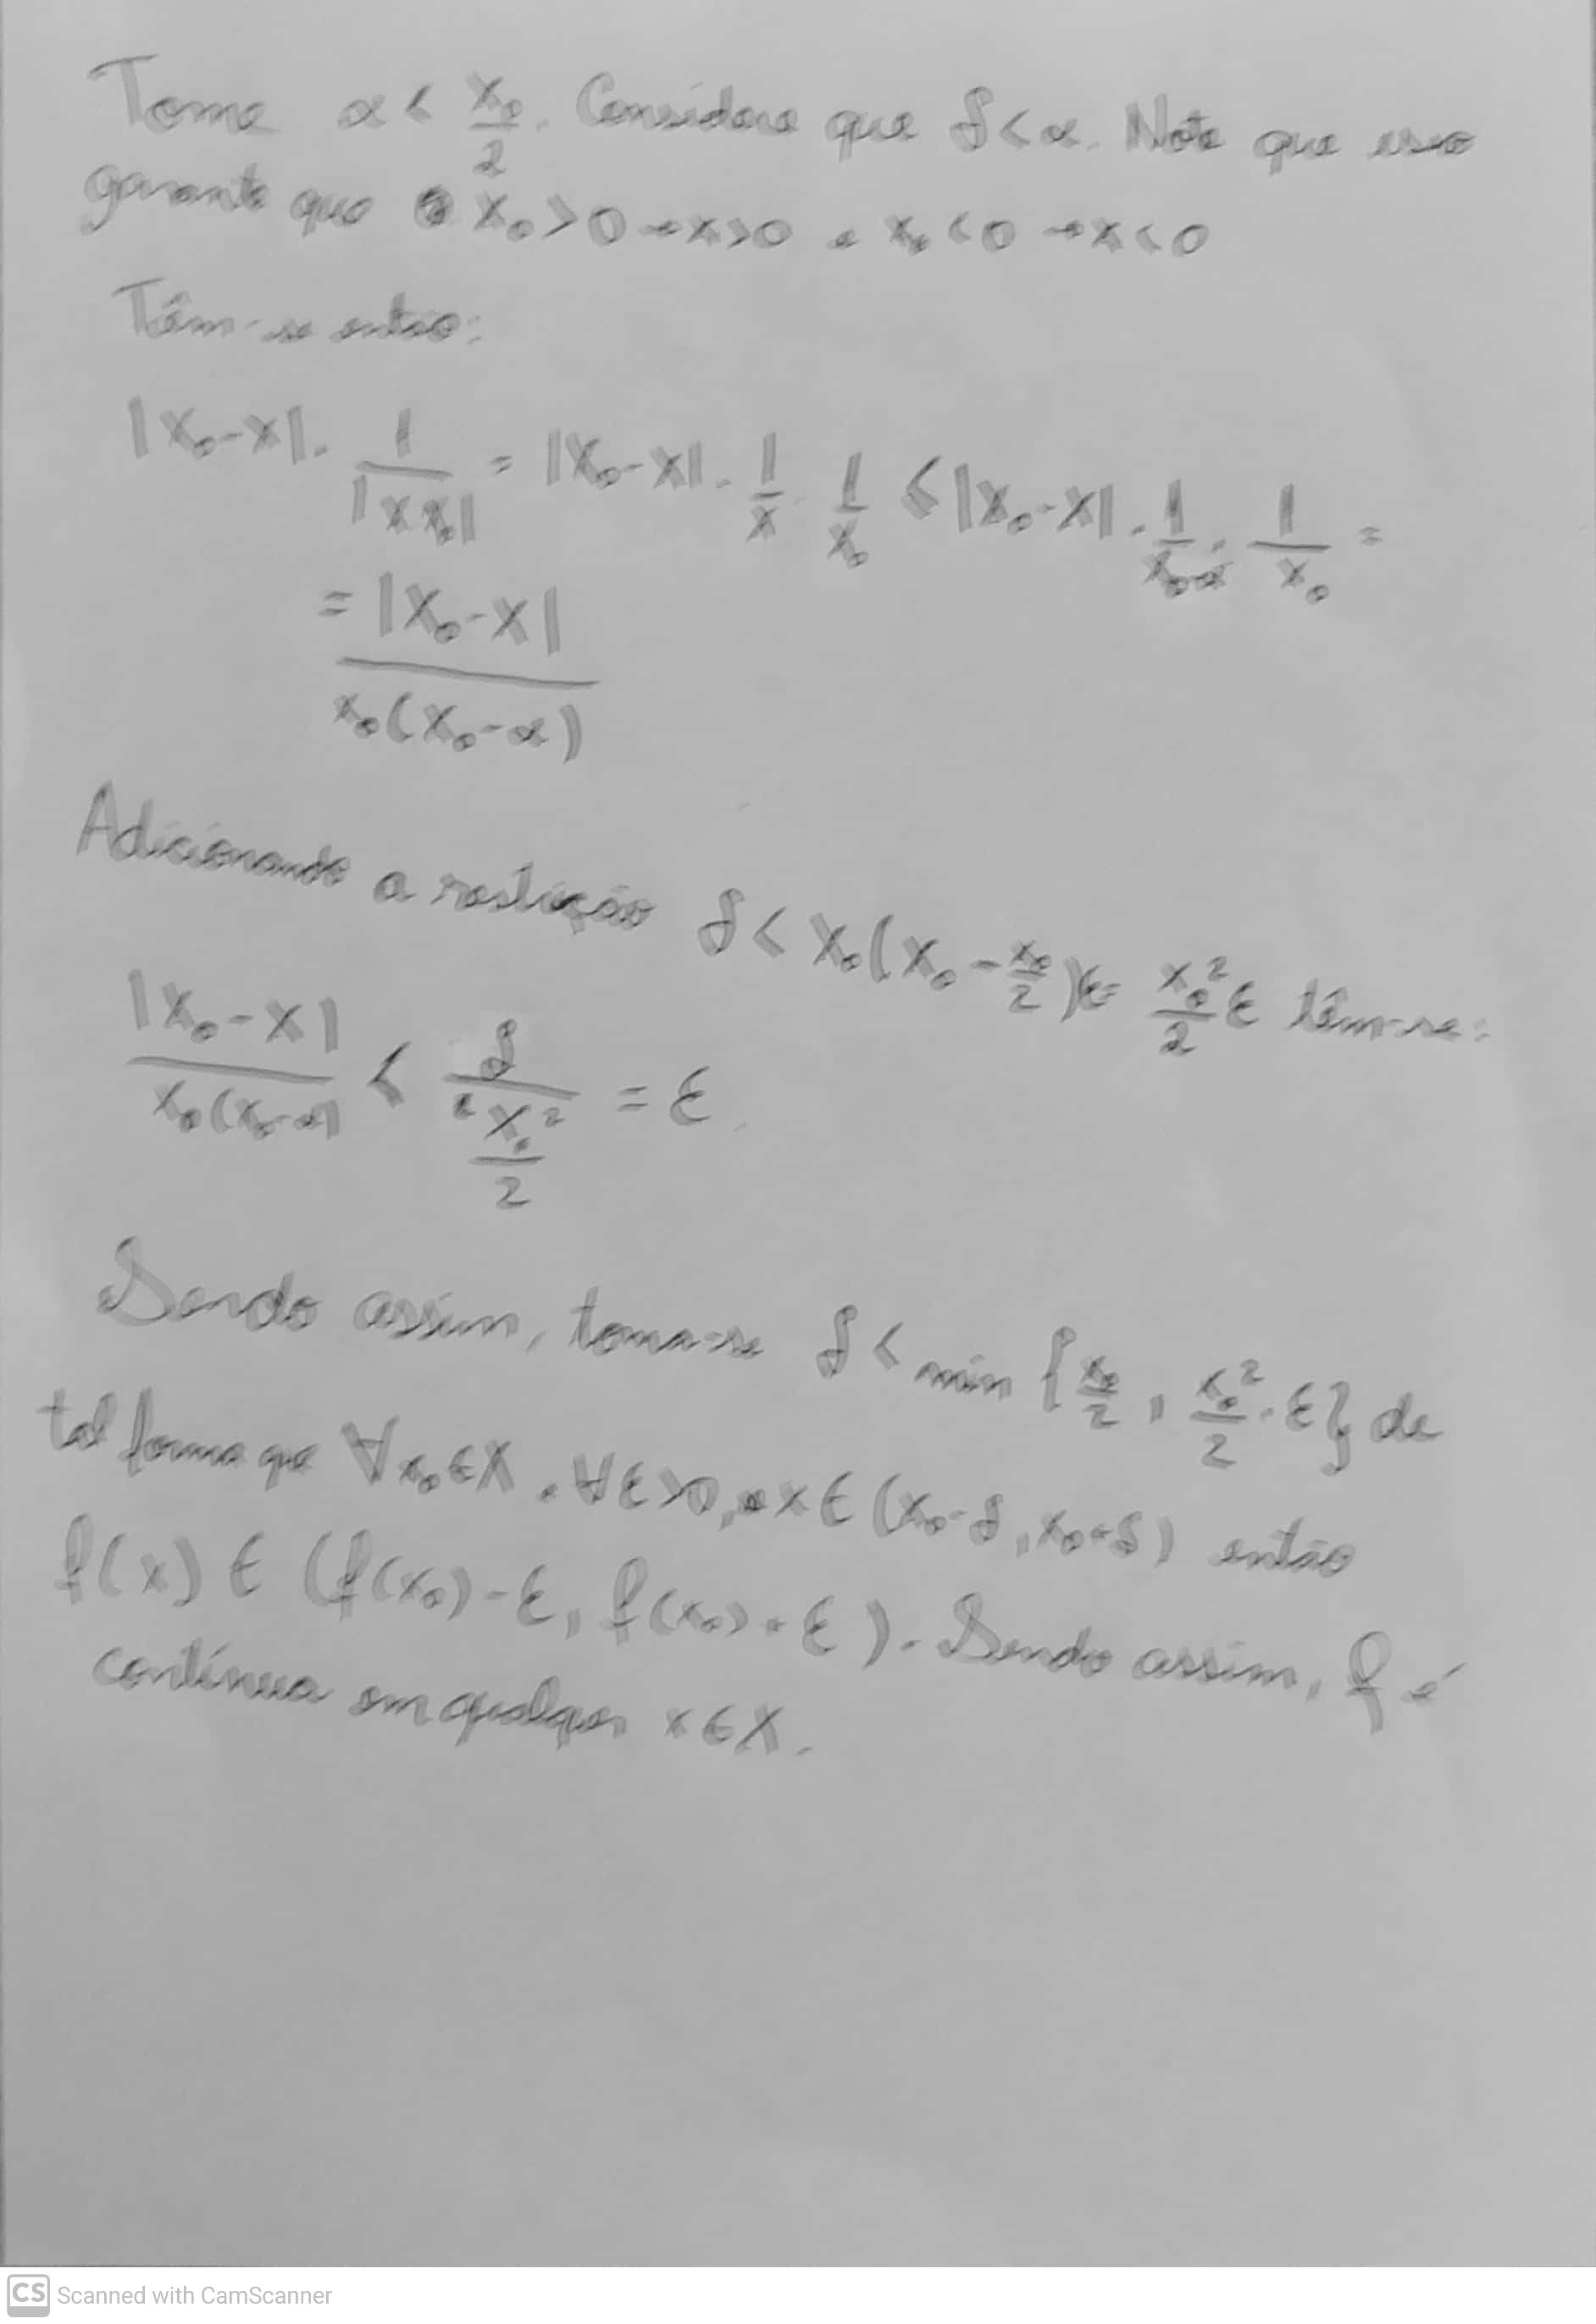 Tome α < x₀/2. Considere que δ < α. Note que isso
garante que x₀ > 0 → x > 0 e x₀ < 0 → x < 0
Têm-se então:
|x₀-x| · 1/|x x₀| = |x₀-x| · 1/x · 1/x₀ ≤ |x₀-x| · 1/(x₀-α) · 1/x₀ =
= |x₀-x| / x₀(x₀-α)
Adicionando a restrição δ < x₀(x₀ - x₀/2)ε = x₀²/2 ε têm-se:
|x₀-x| / x₀(x₀-α) < δ / (x₀²/2) = ε.
Sendo assim, toma-se δ < min {x₀/2, x₀²/2 · ε} de
tal forma que ∀x₀∈X, ∀ε>0, x ∈ (x₀-δ, x₀+δ) então
f(x) ∈ (f(x₀)-ε, f(x₀)+ε). Sendo assim, f é
contínua em qualquer x∈X.
CS Scanned with CamScanner